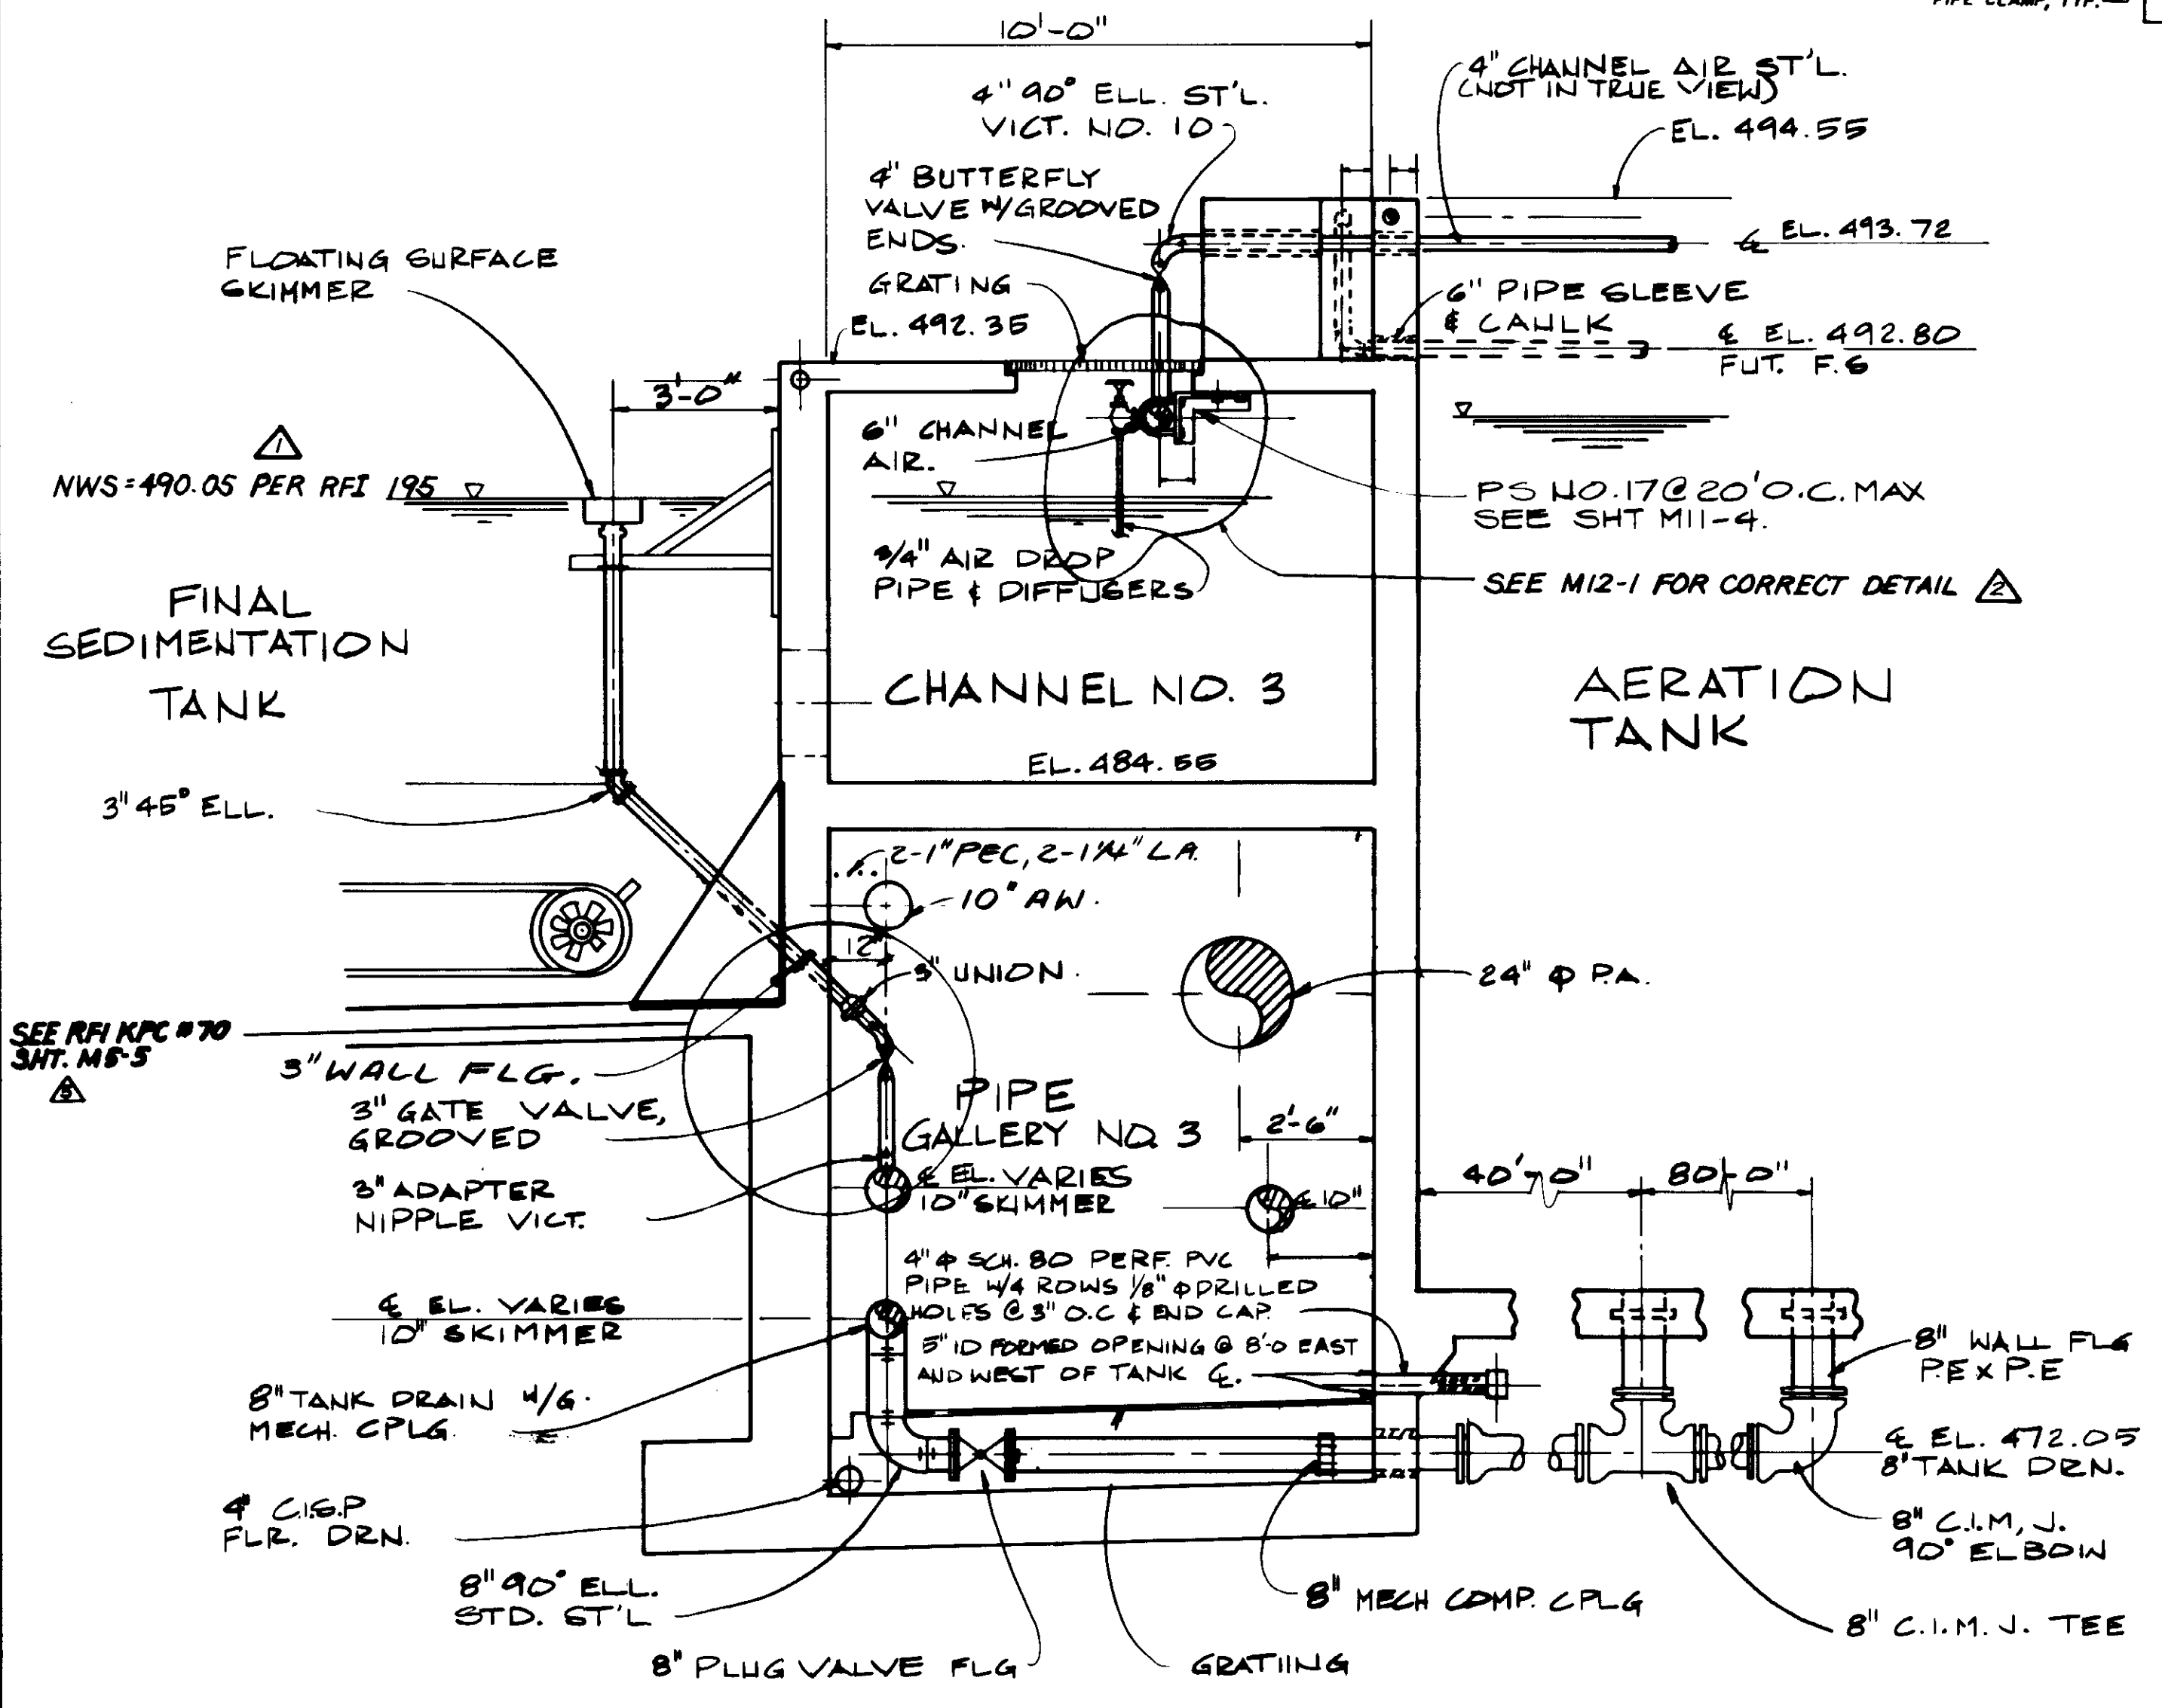 PIPE CLAMP, TYP.
10'-0"
4" CHANNEL AIR ST'L.
(NOT IN TRUE VIEW)
EL. 494.55
4" 90° ELL. ST'L.
VICT. NO. 10
4" BUTTERFLY
VALVE W/GROOVED
ENDS.
GRATING
EL. 492.35
℄ EL. 493.72
6" PIPE SLEEVE
& CAULK
℄ EL. 492.80
FUT. F.S
FLOATING SURFACE
SKIMMER
3'-0"
1
NWS=490.05 PER RFI 195
6" CHANNEL
AIR.
PS NO.17@20'O.C. MAX
SEE SHT M11-4.
3/4" AIR DROP
PIPE & DIFFUSERS
SEE M12-1 FOR CORRECT DETAIL 2
FINAL
SEDIMENTATION
TANK
CHANNEL NO. 3
AERATION
TANK
EL. 484.55
3" 45° ELL.
2-1" PEC, 2-1¼" L.A.
10" AW.
12
3" UNION.
24" Φ P.A.
SEE RFI KPC #70
SHT. M5-5
3" WALL FLG.
3" GATE VALVE,
GROOVED
PIPE
GALLERY NO. 3
2'-6"
3" ADAPTER
NIPPLE VICT.
℄ EL. VARIES
10" SKIMMER
℄ 10"
40'-0"
80'-0"
4" Φ SCH. 80 PERF. PVC
PIPE W/4 ROWS 1/8" Φ DRILLED
HOLES @ 3" O.C & END CAP.
5" ID FORMED OPENING @ 8'-0 EAST
AND WEST OF TANK ℄.
℄ EL. VARIES
10" SKIMMER
8" WALL FLG
P.E X P.E
8" TANK DRAIN W/G.
MECH. CPLG.
℄ EL. 472.05
8" TANK DRN.
4" C.I.S.P
FLR. DRN.
8" C.I.M, J.
90° ELBOW
8" 90° ELL.
STD. ST'L
8" MECH COMP. CPLG
8" C.I.M. J. TEE
8" PLUG VALVE FLG
GRATIING